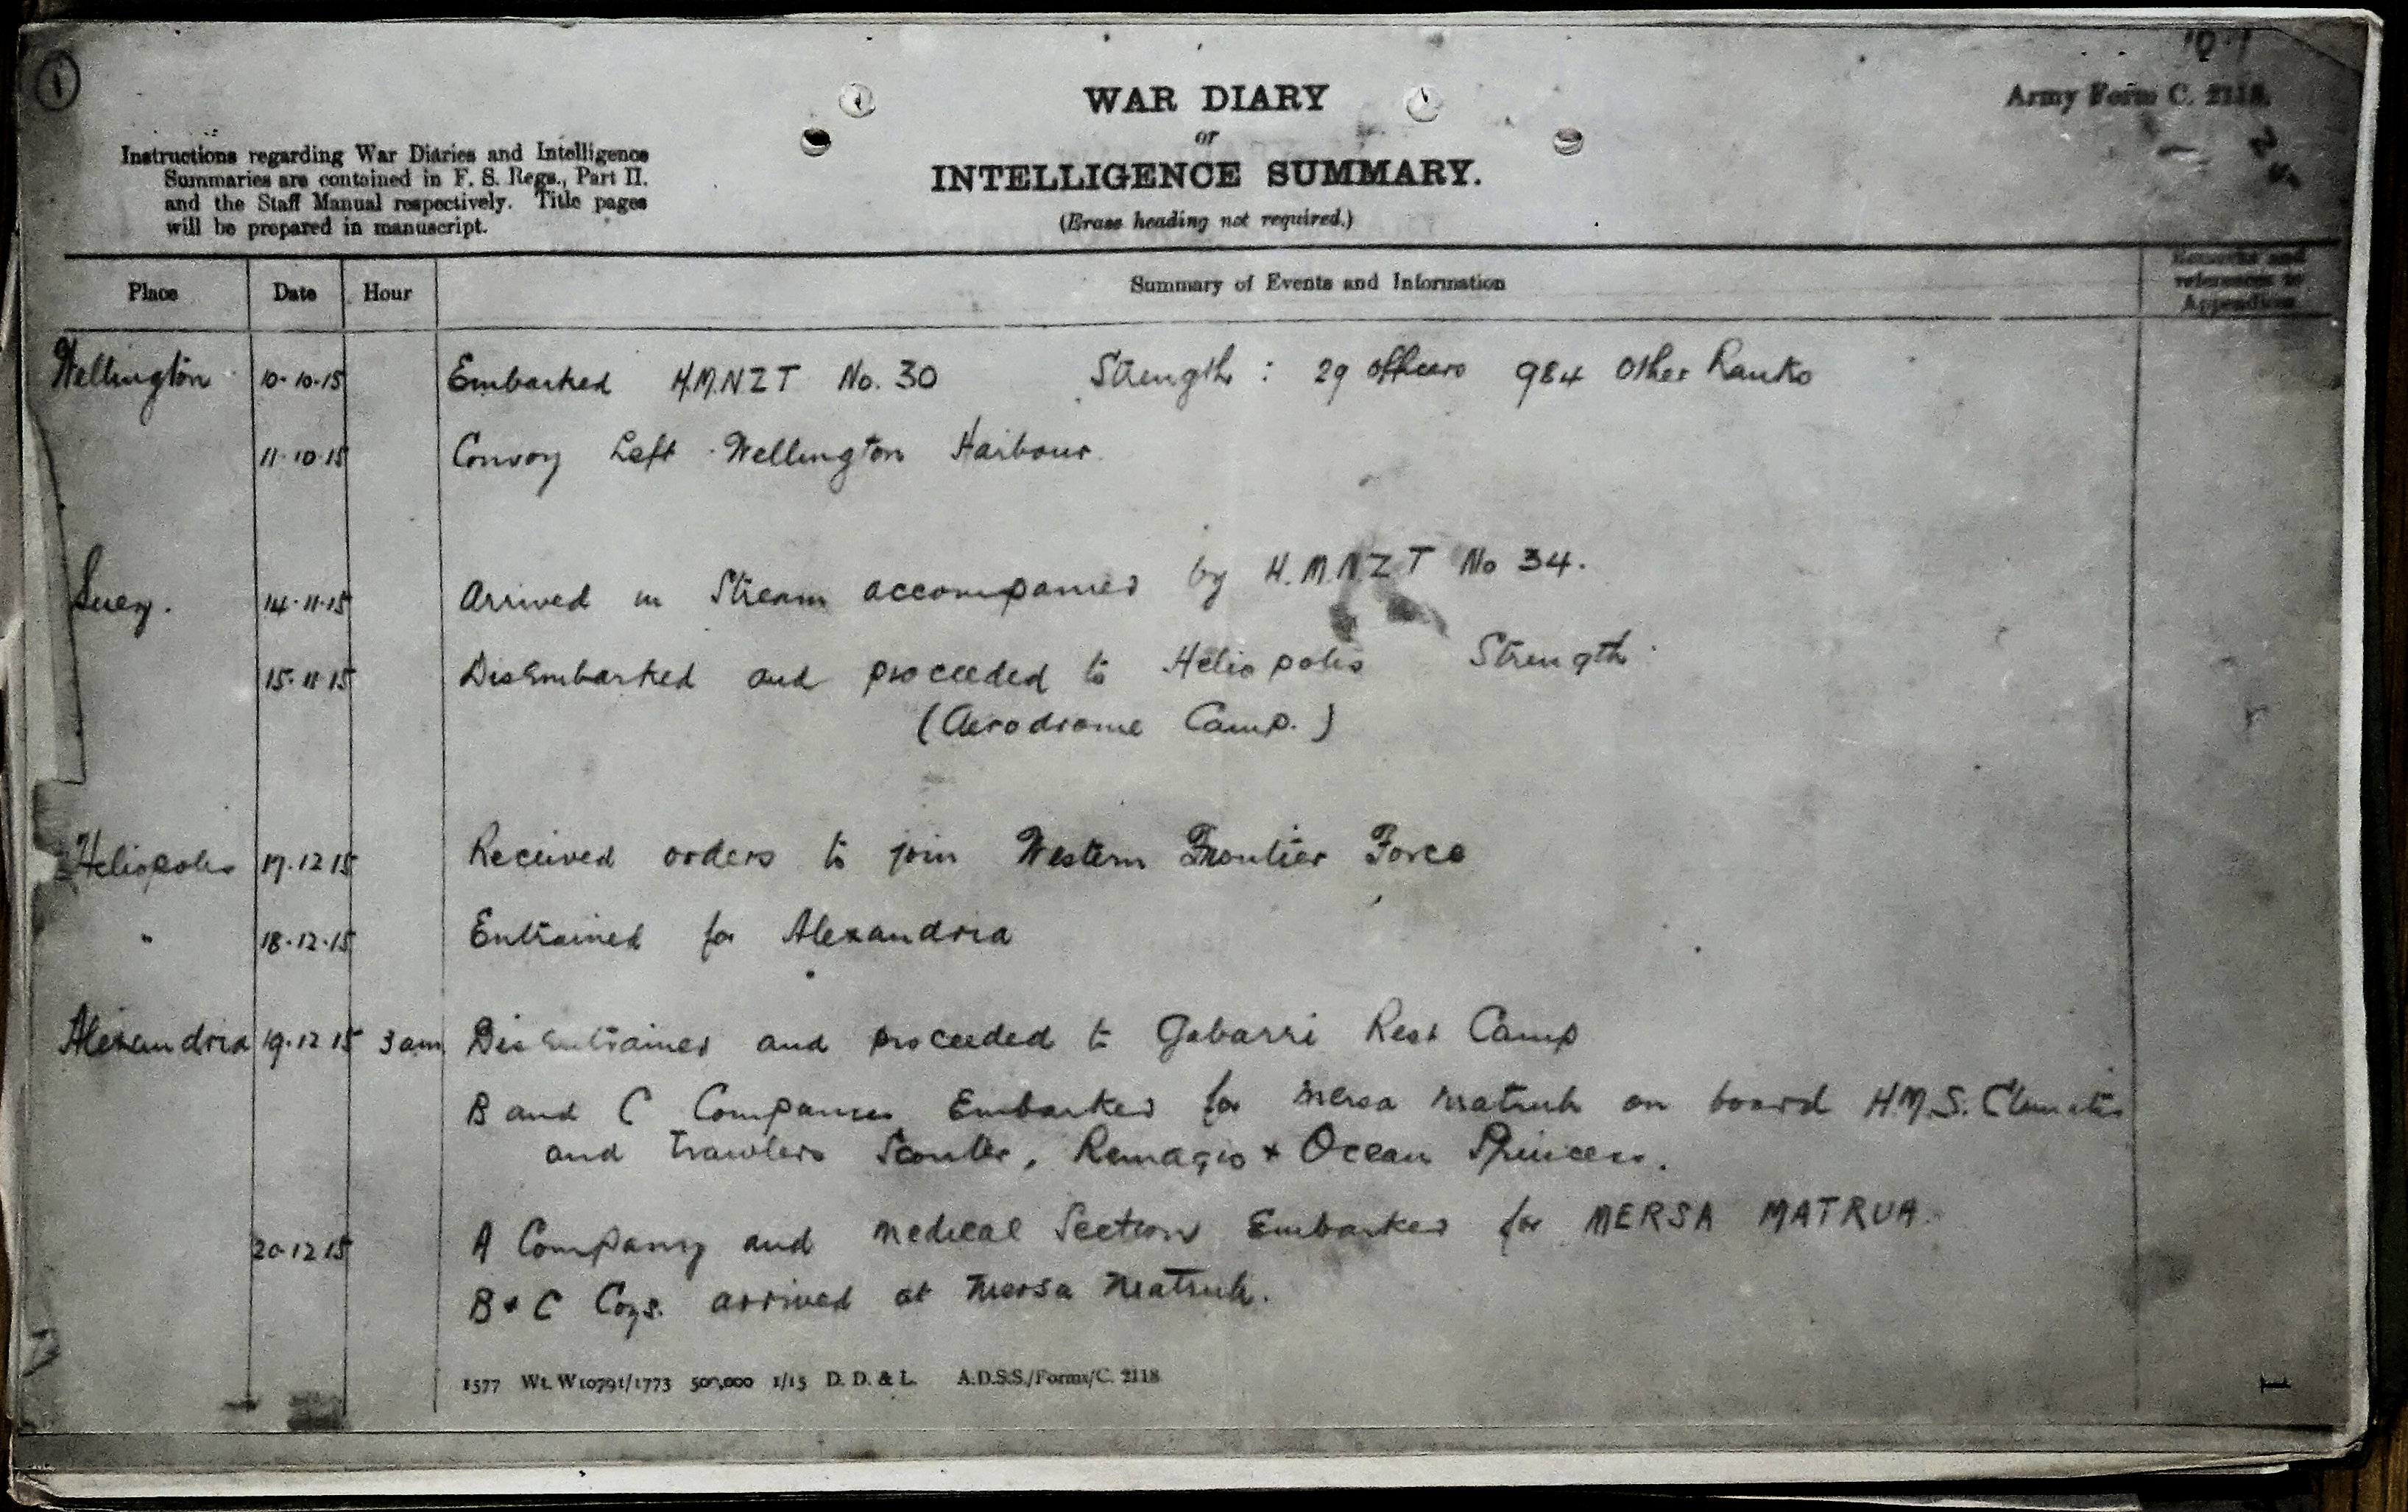 1
WAR DIARY
or
INTELLIGENCE SUMMARY.
(Erase heading not required.)
Army Form C. 2118.
Instructions regarding War Diaries and Intelligence
Summaries are contained in F. S. Regs., Part II.
and the Staff Manual respectively. Title pages
will be prepared in manuscript.
Place Date Hour Summary of Events and Information Remarks and
references to
Appendices
Wellington 10-10-15 Embarked H.M.N.Z.T No. 30 Strength : 29 officers 984 Other Ranks
11-10-15 Convoy Left Wellington Harbour.
Suez. 14-11-15 Arrived in Stream accompanied by H.M.N.Z T No 34.
15-11-15 Disembarked and proceeded to Heliopolis Strength
(Aerodrome Camp.)
Heliopolis 17.12 15 Received orders to join Western Frontier Force
" 18-12-15 Entrained for Alexandria
Alexandria 19.12 15 3 am Disentrained and proceeded to Gabarri Rest Camp
B and C Companies Embarked for Mersa Matruh on board H.M.S. Clematis
and trawlers , + Ocean Princess.
20.12 15 A Company and Medical Section Embarked for MERSA MATRUA.
B + C Coys. arrived at Mersa Matruh.
1577 Wt. W10791/1773 500,000 1/15 D. D. & L. A.D.S.S./Forms/C. 2118
1